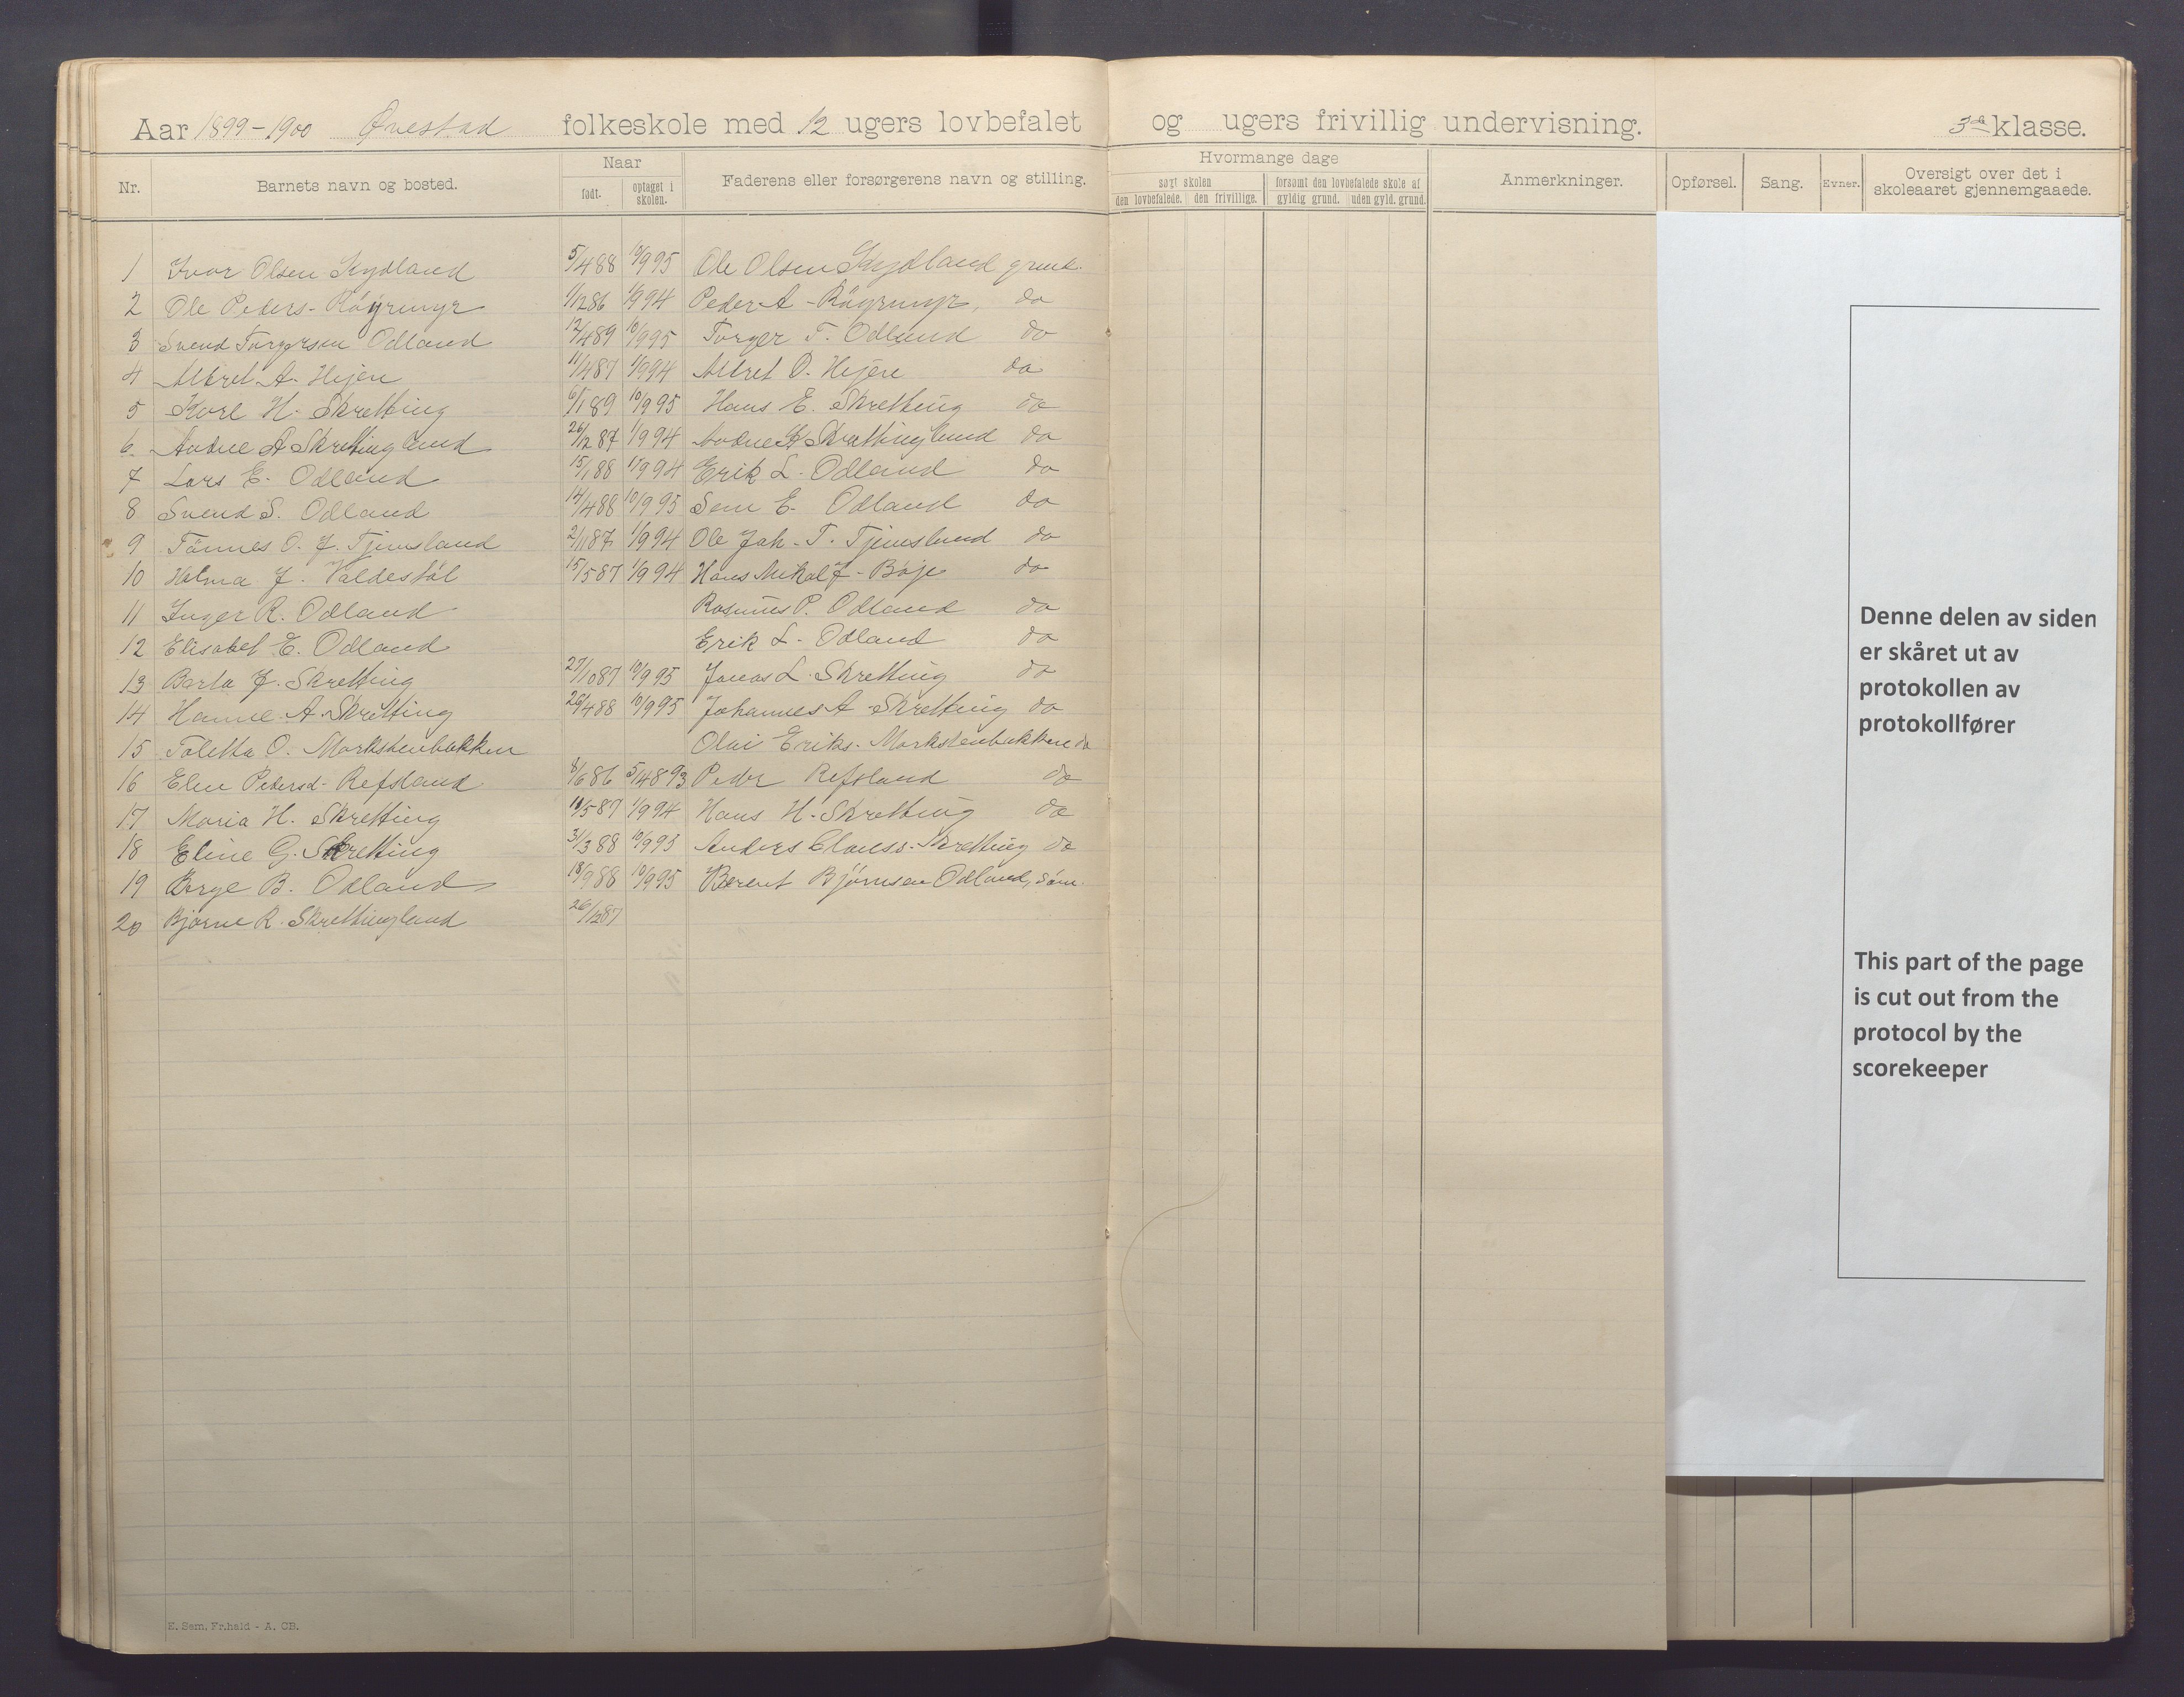 Aar 1899-1900 Ørestad folkeskole med 12 ugers lovbefalet og ugers frivillig undervisning. 3die klasse.
Nr. Barnets navn og bosted. Naar født. optaget i skolen. Faderens eller forsørgerens navn og stilling. Hvormange dage søgt skolen den lovbefalede. den frivillige. forsømt den lovbefalede skole af gyldig grund. uden gyld. grund. Anmerkninger. Opførsel. Sang. Evner. Oversigt over det i skoleaaret gjennemgaaede.
1 Ivar Olsen Skydland 5/4 88 10/9 95 Ole Olsen Skydland grmd.
2 Ole Peders- Röyrmyr 1/12 86 1/9 94 Peder A - Röyrmyr, do
3 Svend Torgersen Odland 12/4 89 10/9 95 Torger T. Odland do
4 Albret A. Hejen 11/4 87 1/9 94 Albret O. Hejen do
5 Karl H. Skretting 6/1 89 10/9 95 Hans E. Skretting do
6. Audne A Skrettingland 26/12 87 1/9 94 Audne Skrettingland do
7 Lars E. Odland 15/1 88 1/9 94 Erik L. Odland do
8 Svend S. Odland 14/4 88 10/9 95 Sem E. Odland do
9 Tönnes O. J. Tjemsland 2/11 87 1/9 94 Ole Joh- T. Tjemsland do
10 Helma J. Valdestöl 15/5 87 1/9 94 Hans Mikal J- Böje do
11 Inger R. Odland Rasmus P. Odland do
12 Elisabet E. Odland Erik L. Odland do
13 Berta J. Skretting 27/10 87 10/9 95 Jonas L. Skretting do
14 Hanne A. Skretting 26/4 88 10/9 95 Johannes A Skretting do
15 Toletta O. Markstenbakken Olai Eriks. Markstenbakken do
16 Elen Pedersd- Refsland 8/6 86 5/4 93 Peder Refsland do
17 Maria H. Skretting 10/5 87 1/9 94 Hans H. Skretting do
18 Eline G. Skretting 31/3 88 10/9 95 Anders Clauss. Skretting do
19 Børge B. Odland 18/9 88 10/9 95 Berent Bjørnsen Odland, söm.
20 Bjarne R. Skrettingland 26/12 87
Denne delen av siden
er skåret ut av
protokollen av
protokollfører
This part of the page
is cut out from the
protocol by the
scorekeeper
E. Sem. Fr.hald - A. CB.